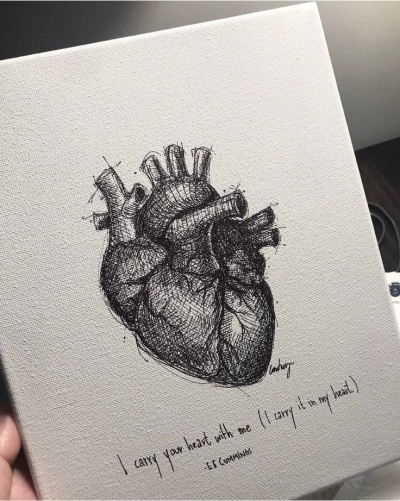 I carry your heart with me (I carry it in my heart)
-EE CUMMINGS